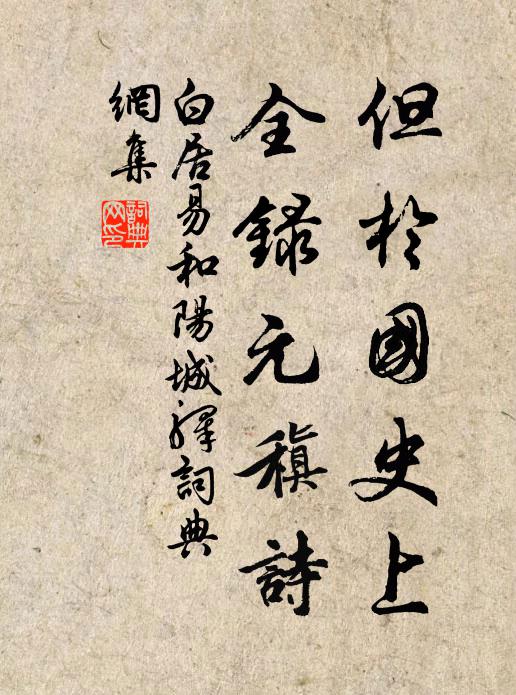 但於國史上
全錄元稹詩
白居易和陽城驛詞典
網集
詞典網印